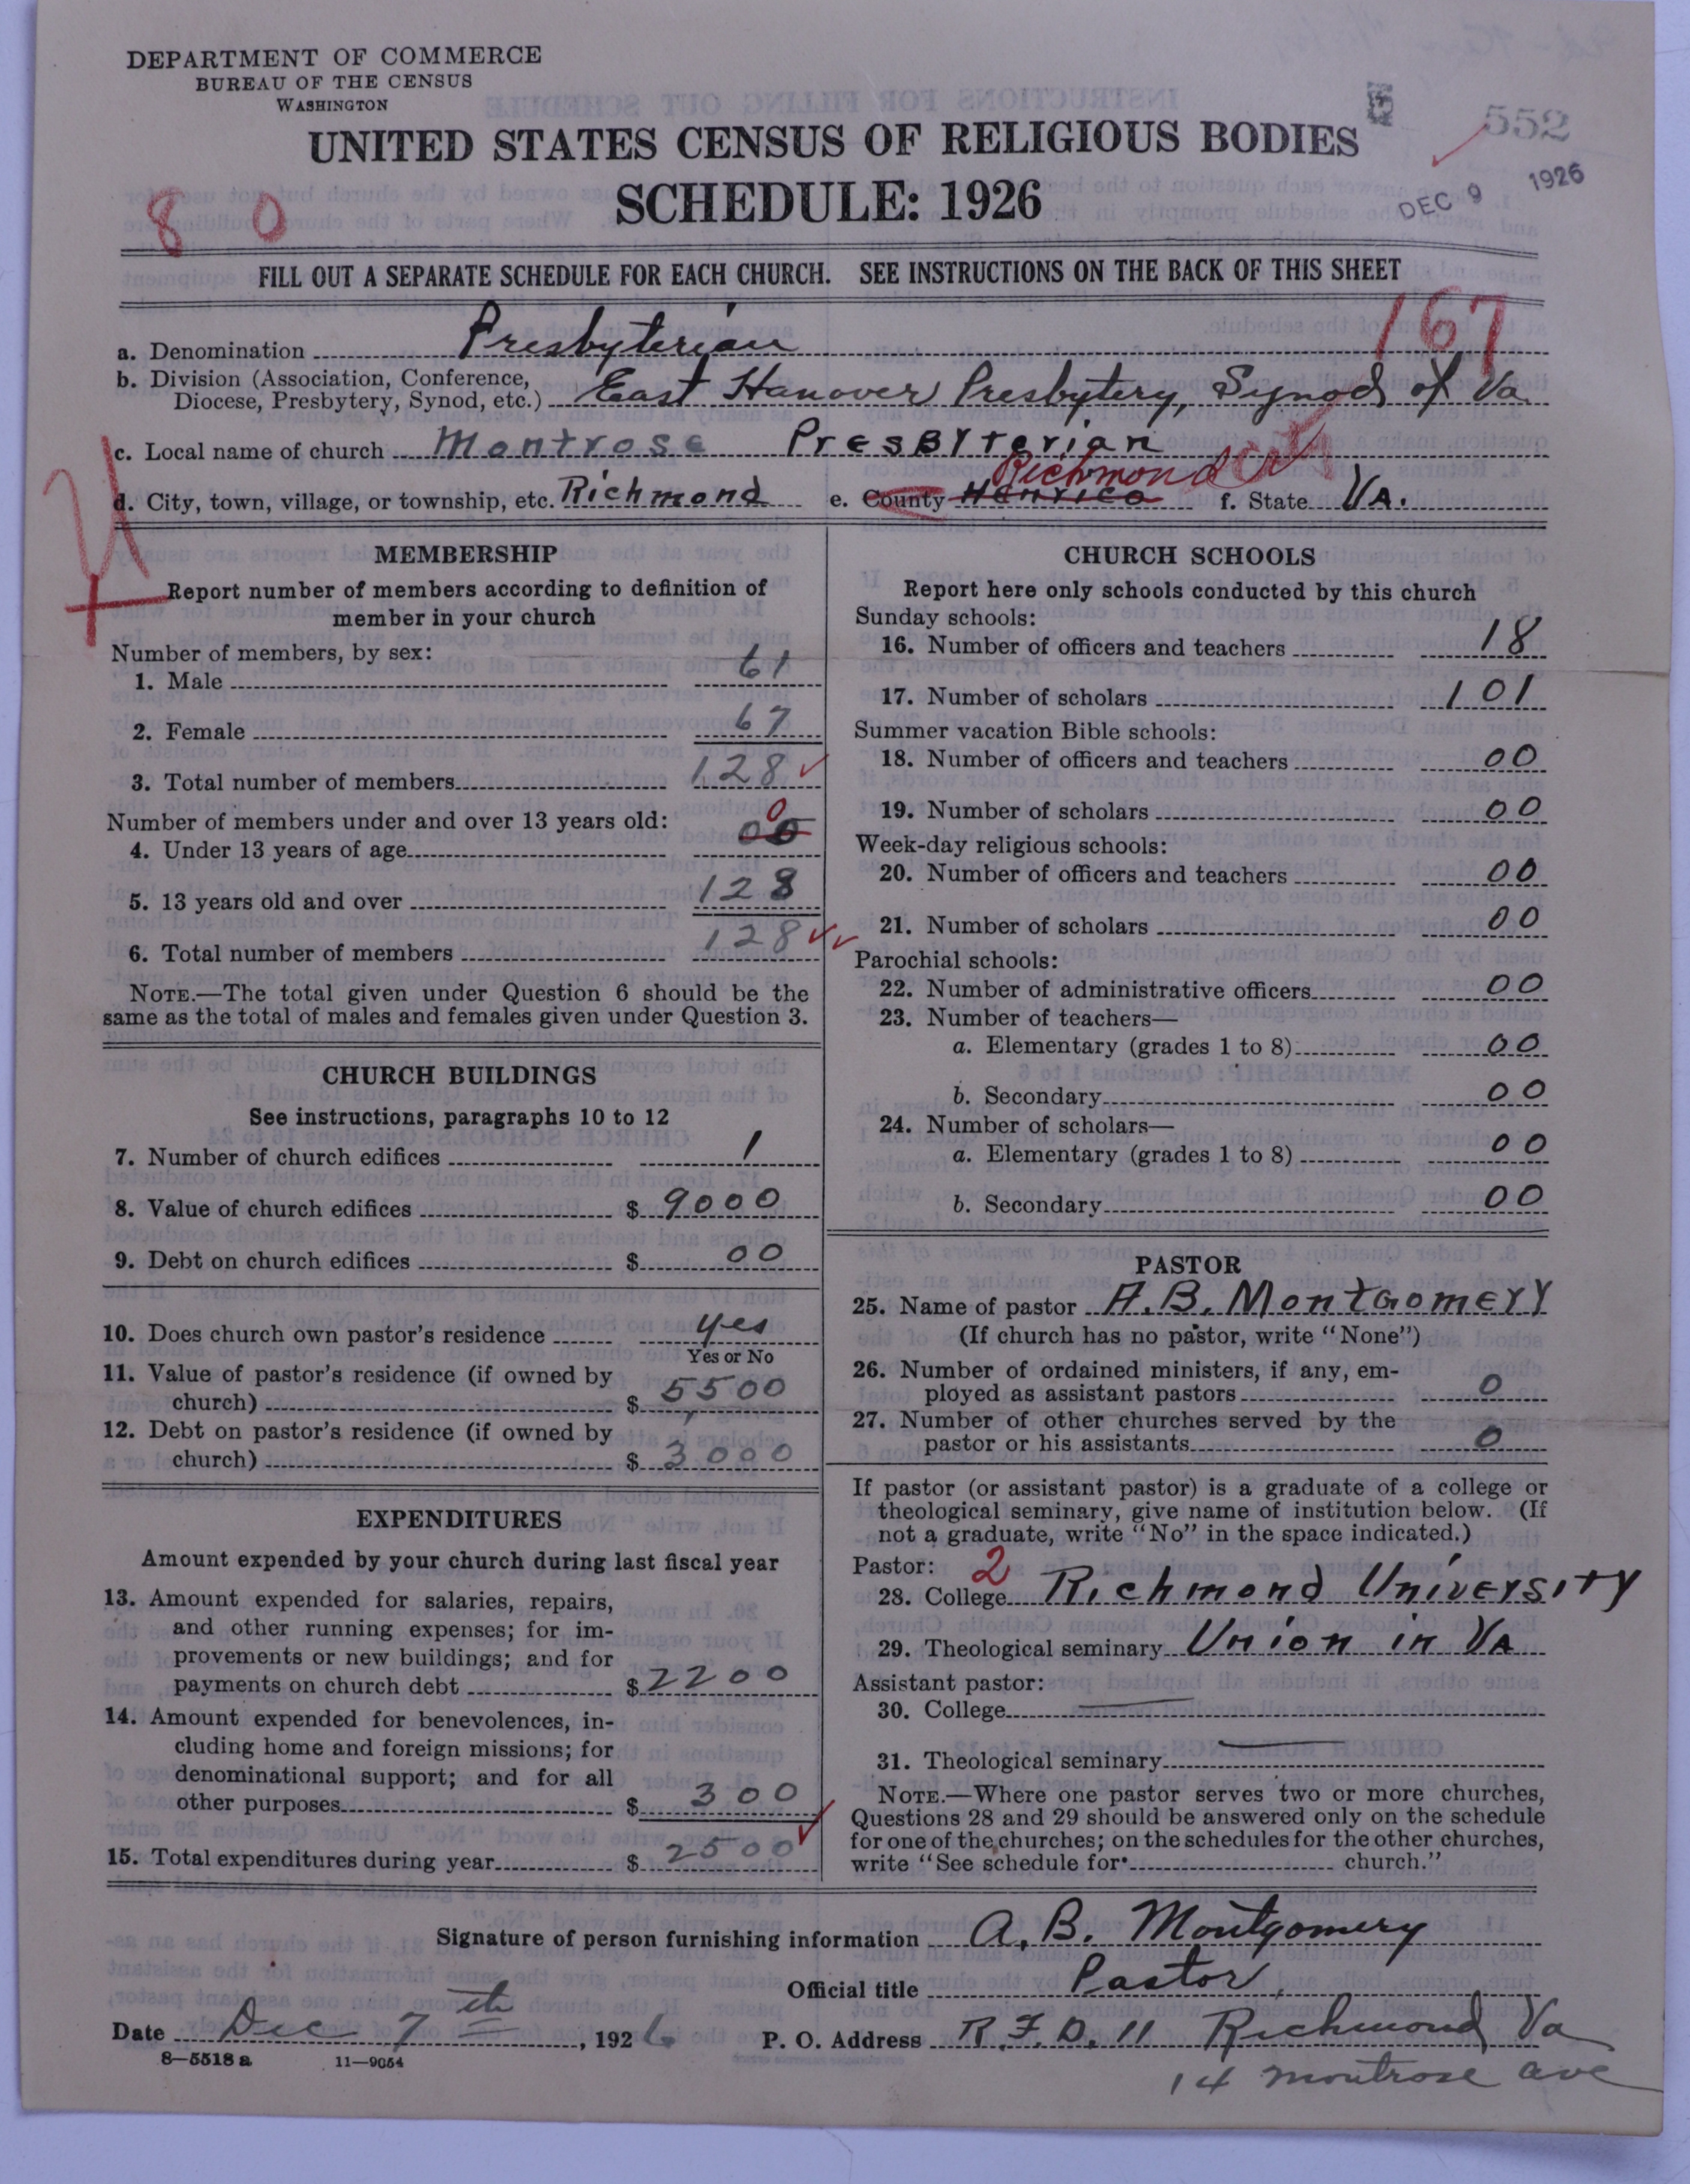 DEPARTMENT OF COMMERCE
BUREAU OF THE CENSUS
WASHINGTON
UNITED STATES CENSUS OF RELIGIOUS BODIES
SCHEDULE: 1926
552
DEC 9 1926
8 0
FILL OUT A SEPARATE SCHEDULE FOR EACH CHURCH. SEE INSTRUCTIONS ON THE BACK OF THIS SHEET
167
a. Denomination Presbyterian
b. Division (Association, Conference, Diocese, Presbytery, Synod, etc.) East Hanover Presbytery, Synod of Va.
c. Local name of church Montrose Presbyterian
Richmond City
d. City, town, village, or township, etc. Richmond e. County Henrico f. State Va.
MEMBERSHIP
Report number of members according to definition of
member in your church
Number of members, by sex:
1. Male 61
2. Female 67
3. Total number of members 128
Number of members under and over 13 years old:
0
4. Under 13 years of age 00
5. 13 years old and over 128
6. Total number of members 128
NOTE.—The total given under Question 6 should be the
same as the total of males and females given under Question 3.
CHURCH BUILDINGS
See instructions, paragraphs 10 to 12
7. Number of church edifices 1
8. Value of church edifices $ 9000
9. Debt on church edifices $ 00
10. Does church own pastor's residence yes
Yes or No
11. Value of pastor's residence (if owned by
church) $ 5500
12. Debt on pastor's residence (if owned by
church) $ 3000
EXPENDITURES
Amount expended by your church during last fiscal year
13. Amount expended for salaries, repairs,
and other running expenses; for im-
provements or new buildings; and for
payments on church debt $ 2200
14. Amount expended for benevolences, in-
cluding home and foreign missions; for
denominational support; and for all
other purposes $ 300
15. Total expenditures during year $ 2500
CHURCH SCHOOLS
Report here only schools conducted by this church
Sunday schools:
16. Number of officers and teachers 18
17. Number of scholars 101
Summer vacation Bible schools:
18. Number of officers and teachers 00
19. Number of scholars 00
Week-day religious schools:
20. Number of officers and teachers 00
21. Number of scholars 00
Parochial schools:
22. Number of administrative officers 00
23. Number of teachers—
a. Elementary (grades 1 to 8) 00
b. Secondary 00
24. Number of scholars—
a. Elementary (grades 1 to 8) 00
b. Secondary 00
PASTOR
25. Name of pastor A. B. Montgomery
(If church has no pastor, write "None")
26. Number of ordained ministers, if any, em-
ployed as assistant pastors 0
27. Number of other churches served by the
pastor or his assistants 0
If pastor (or assistant pastor) is a graduate of a college or
theological seminary, give name of institution below. (If
not a graduate, write "No" in the space indicated.)
Pastor: 2
28. College Richmond University
29. Theological seminary Union in Va
Assistant pastor:
30. College
31. Theological seminary
NOTE.—Where one pastor serves two or more churches,
Questions 28 and 29 should be answered only on the schedule
for one of the churches; on the schedules for the other churches,
write "See schedule for church."
Signature of person furnishing information A. B. Montgomery
Official title Pastor
Date Dec 7th, 1926 P. O. Address R. F. D. 11 Richmond Va
8—5518 a 11—9054
14 montrose ave